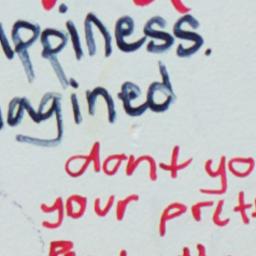 ppiness.
agined
dont yo
your pret